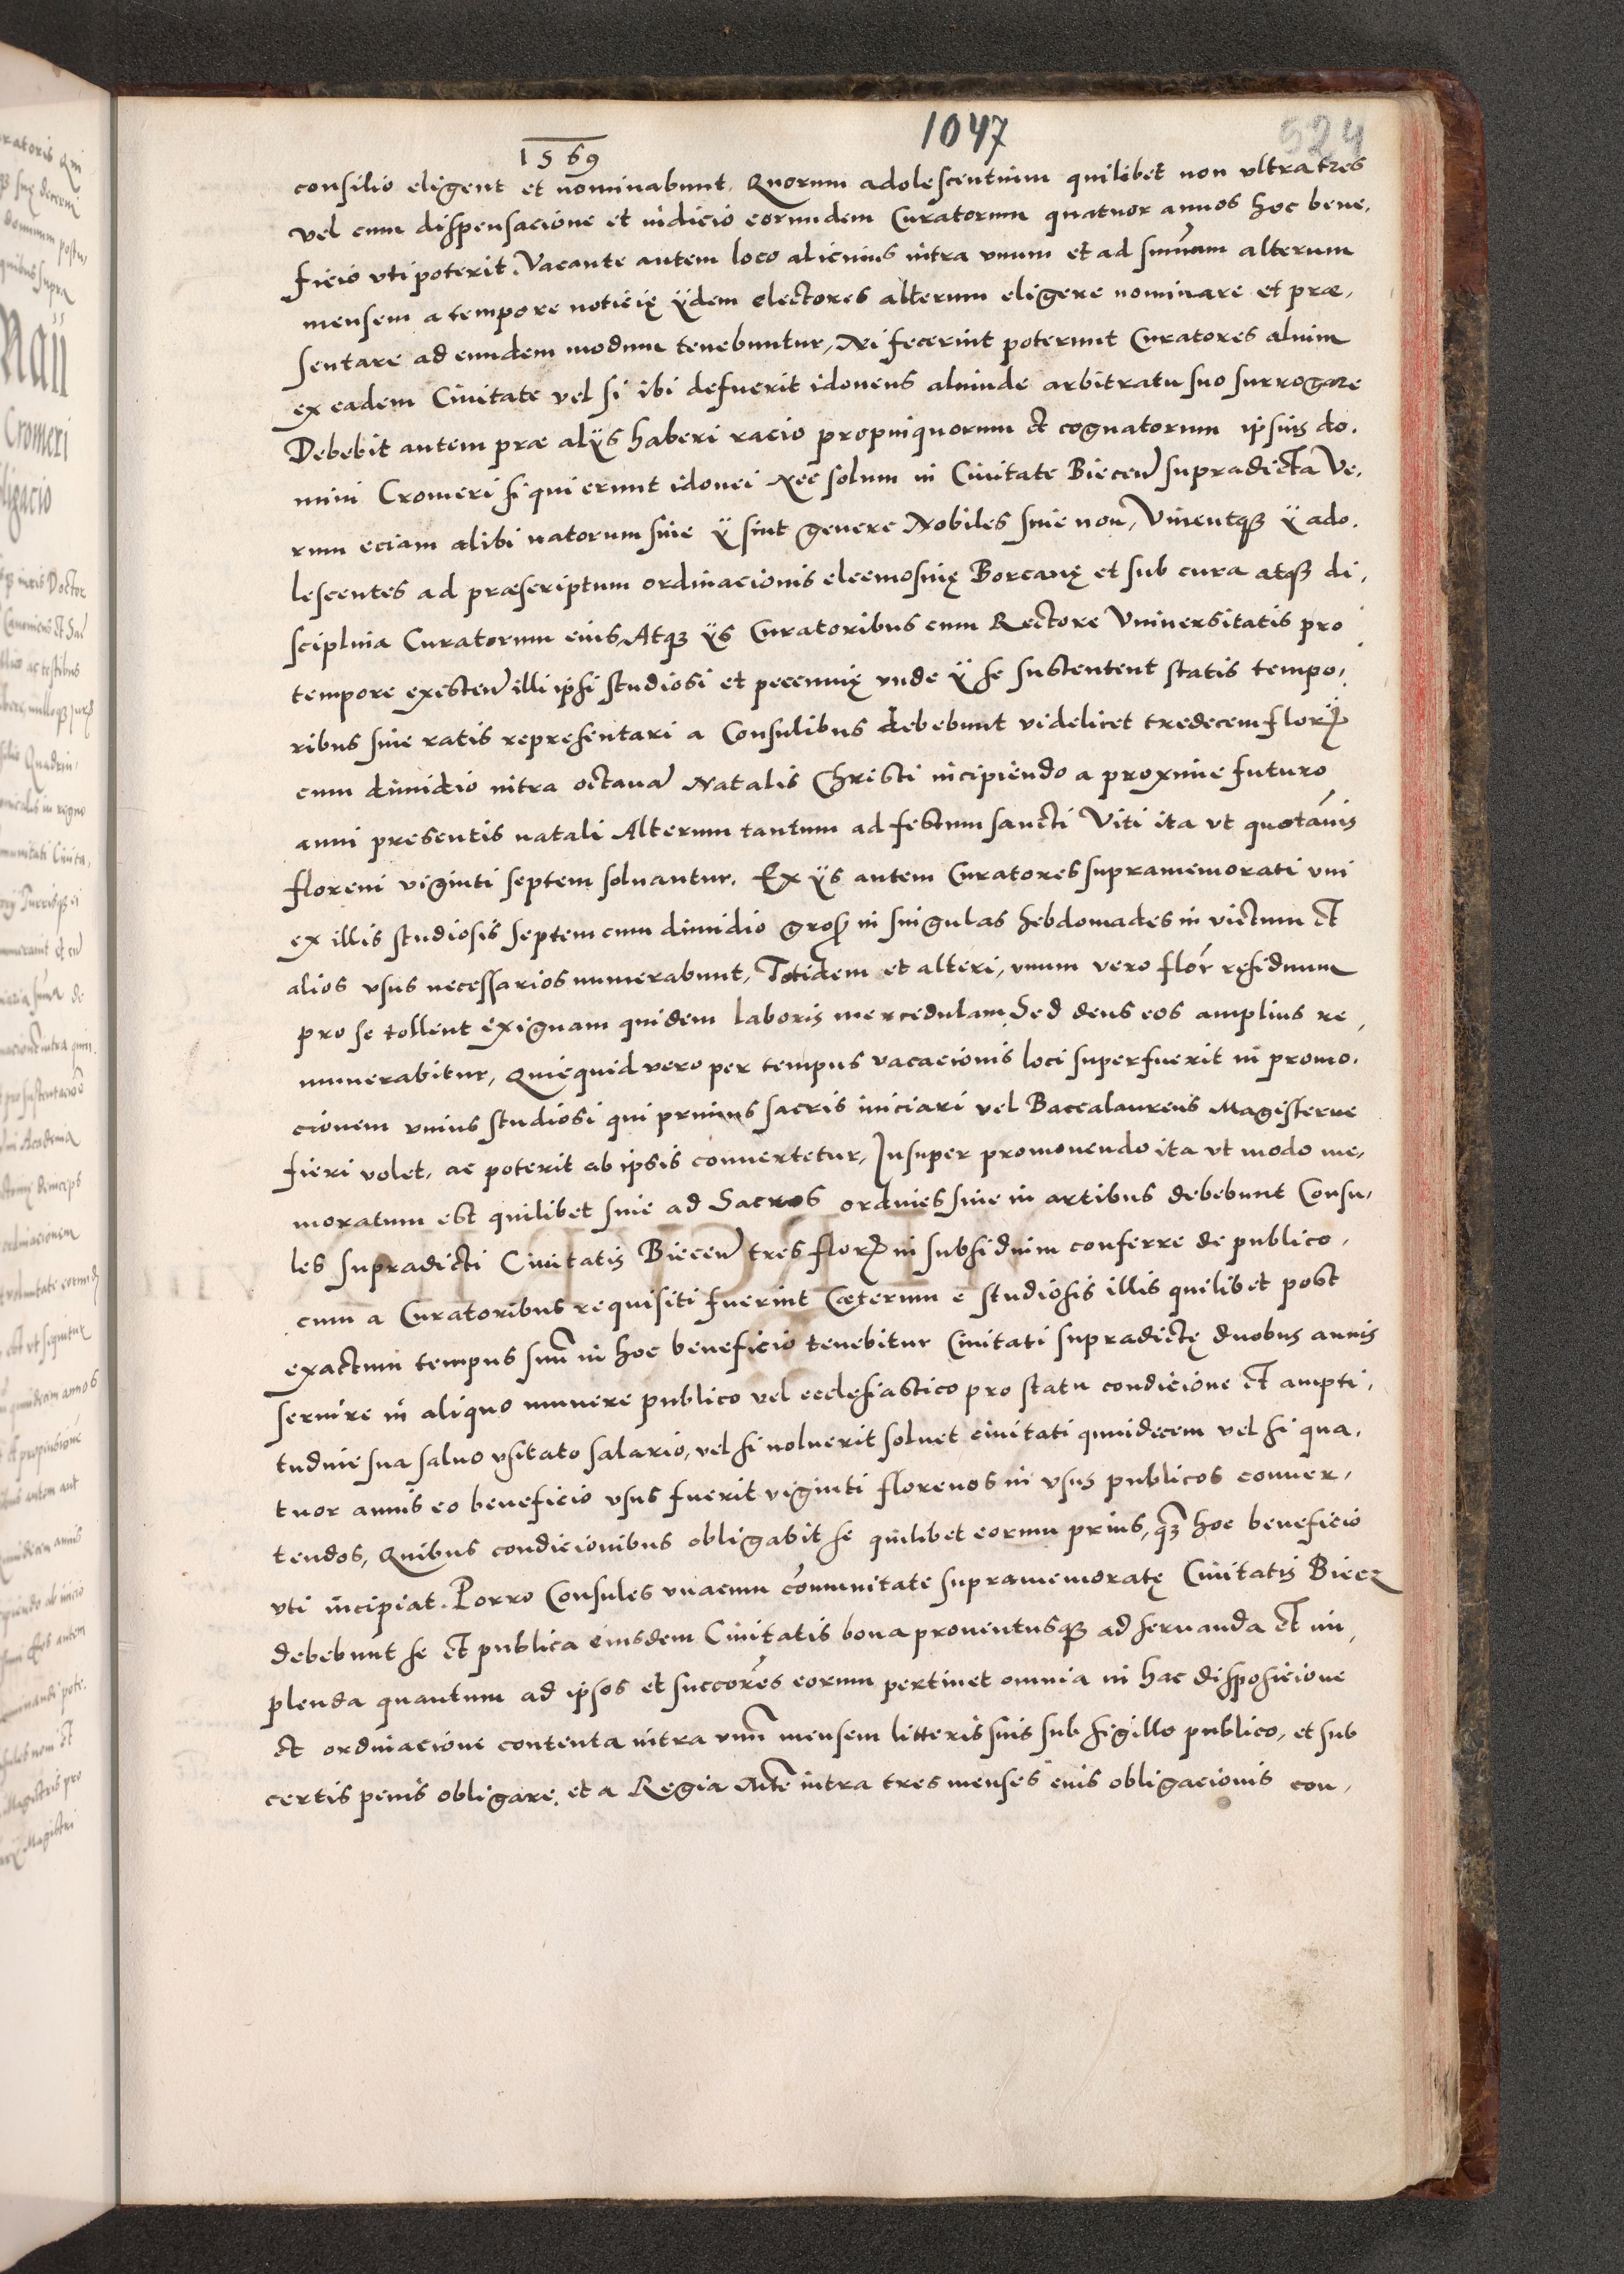 1569
1047
524
consilio eligent et nominabunt. Quorum adolescentium quilibet non ultra tres
vel cum dispensacione et iudicio eorundem Curatorum quatuor annos hoc bene,
ficio uti poterit. Vacante autem loco alicuius intra unum et ad sum̃um alterum
mensem a tempore noticię ÿdem electores alterum eligere nominare et præ,
sentare ad eundem modum tenebuntur, Ni fecerint poterunt Curatores alium
ex eadem Ciuitate vel si ibi defuerit idoneus aliunde arbitratu suo surrogare
Debebit autem præ alÿs haberi racio propinquorum et cognatorum ipsius do.
mini Cromeri si qui erunt idonei Nec solum in Ciuitate Biecen̄ supradicta Ve.
rum eciam alibi natorum siue ÿ sint genere Nobiles siue non, Viuentqꝫ ÿ ado.
lescentes ad præscriptum ordinacionis eleemosinę Borcanę et sub cura atqꝫ di,
sciplina Curatorum eius, Atqꝫ ÿs Curatoribus cum Rectore Vniuersitatis pro
tempore existen̄ illi ipsi studiosi et pecunię unde ÿ se sustentent statis tempo,
ribus siue ratis representari a Consulibus debebunt videlicet tredecem floꝝ
cum dimidio intra octauā Natalis Christi incipiendo a proxime futuro
anni presentis natali Alterum tantum ad festum sancti Viti ita ut quotãnis
floreni viginti septem soluantur. Ex ÿs autem Curatores supramemorati uni
ex illis studiosis septem cum dimidio gros̄ in singulas hebdomades in victum et
alios usus necessarios numerabunt, Totidem et alteri, unum vero flor̃ residuum
pro se tollent exiguam quidem laboris mercedulam, Sed deus eos amplius re,
munerabitur, Quicquid vero per tempus vacacionis loci superfuerit in promo.
cionem unius studiosi qui primus sacris iniciari vel Baccalaureus Magisterue
fieri volet, ac poterit ab ipsis conuertetur, Insuper promouendo ita ut modo me,
moratum est quilibet siue ad Sacros ordines siue in artibus debebunt Consu,
les supradicti Ciuitatis Biecen̄ tres floꝝ in subsidium conferre de publico,
cum a Curatoribus requisiti fuerint Cæterum e studiosis illis quilibet post
exactum tempus suũ in hoc beneficio tenebitur Ciuitati supradictę duobus annis
seruire in aliquo munere publico vel ecclesiastico pro statu condicione et ampti,
tudine sua saluo usitato salario, vel si noluerit soluet ciuitati quindecem vel si qua,
tuor annis eo beneficio usus fuerit viginti florenos in usus publicos conuer,
tendos, Quibus condicionibus obligabit se quilibet eorum prius, qꝫ̃ hoc beneficio
uti incipiat. Porro Consules unacum com̃unitate supramemoratę Ciuitatis Biecz
debebunt se et publica eiusdem Ciuitatis bona prouentusqꝫ ad seruanda et im,
plenda quantum ad ipsos et succores̃ eorum pertinet omnia in hac disposicione
et ordinacione contenta intra unũ mensem litteris suis sub sigillo publico, et sub
certis penis obligare, et a Regia Mte intra tres menses eius obligacionis con,